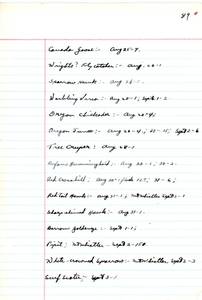 89
Canada Goose:- Aug 25-7.
Wright's Flycatcher:- Aug. 20-1
Sparrow Hawk:- Aug 26-1.
Warbling Vireo:- Aug 20-1; Sept 1-2
Oregon Chickadee:- Aug 20-4;
Oregon Junco:- Aug 20-4; 25-15; Sept 2-6
Tree Creeper:- Aug 20-1
Rufous Hummingbird:- Aug 22-1; 30-2.
Red Crossbill:- Aug 22-1; 31-6;
Redtail Hawk:- Aug 31-1; Mt Whistler Sept 2-1
Sharpshinned Hawk:- Aug 31-1.
Barrow Goldeneye:- Sept 1-1;
Pipit:- Mt Whistler - Sept 2-150
White-crowned Sparrow:- Mt Whistler, Sept 2-3
Surf Scoter:- Sept 3-1